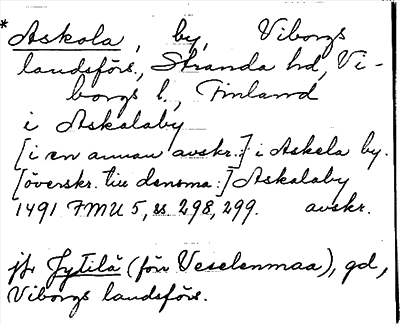 * Askola, by, Viborgs
landsförs., Stranda hd, Vi-
borgs l., Finland
i Askalaby
[i en annan avskr.:] i Askela by.
[överskr. till densma:] Askalaby
1491 FMU 5, ss 298, 299. avskr.
jfr Jytilä (förr Veselenmaa), gd,
Viborgs landsförs.